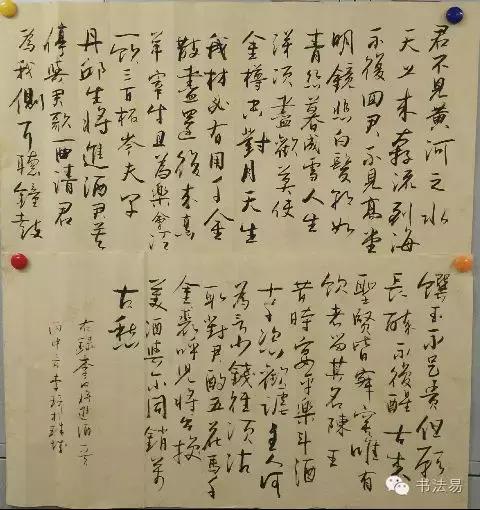 君不見黄河之水
天上来奔流到海
不復回君不見高堂
明鏡悲白髮朝如
青絲暮成雪人生
得須盡歡莫使
金樽空對月天生
我材必有用千金
散盡還復来烹
羊宰牛且為樂會須
一飲三百杯岑夫子
丹邱生將進酒君莫
停與君歌一曲請君
為我側耳聽鐘鼓
饌玉不足貴但願
長醉不復醒古来
聖賢皆寂寞唯有
飲者留其名陳王
昔時宴平樂斗酒
十千恣歡謔主人何
為言少錢徑須沽
取對君酌五花馬千
金裘呼兒將出換
美酒與尔同銷萬
古愁
右録李白將進酒一首
丙申
书法易